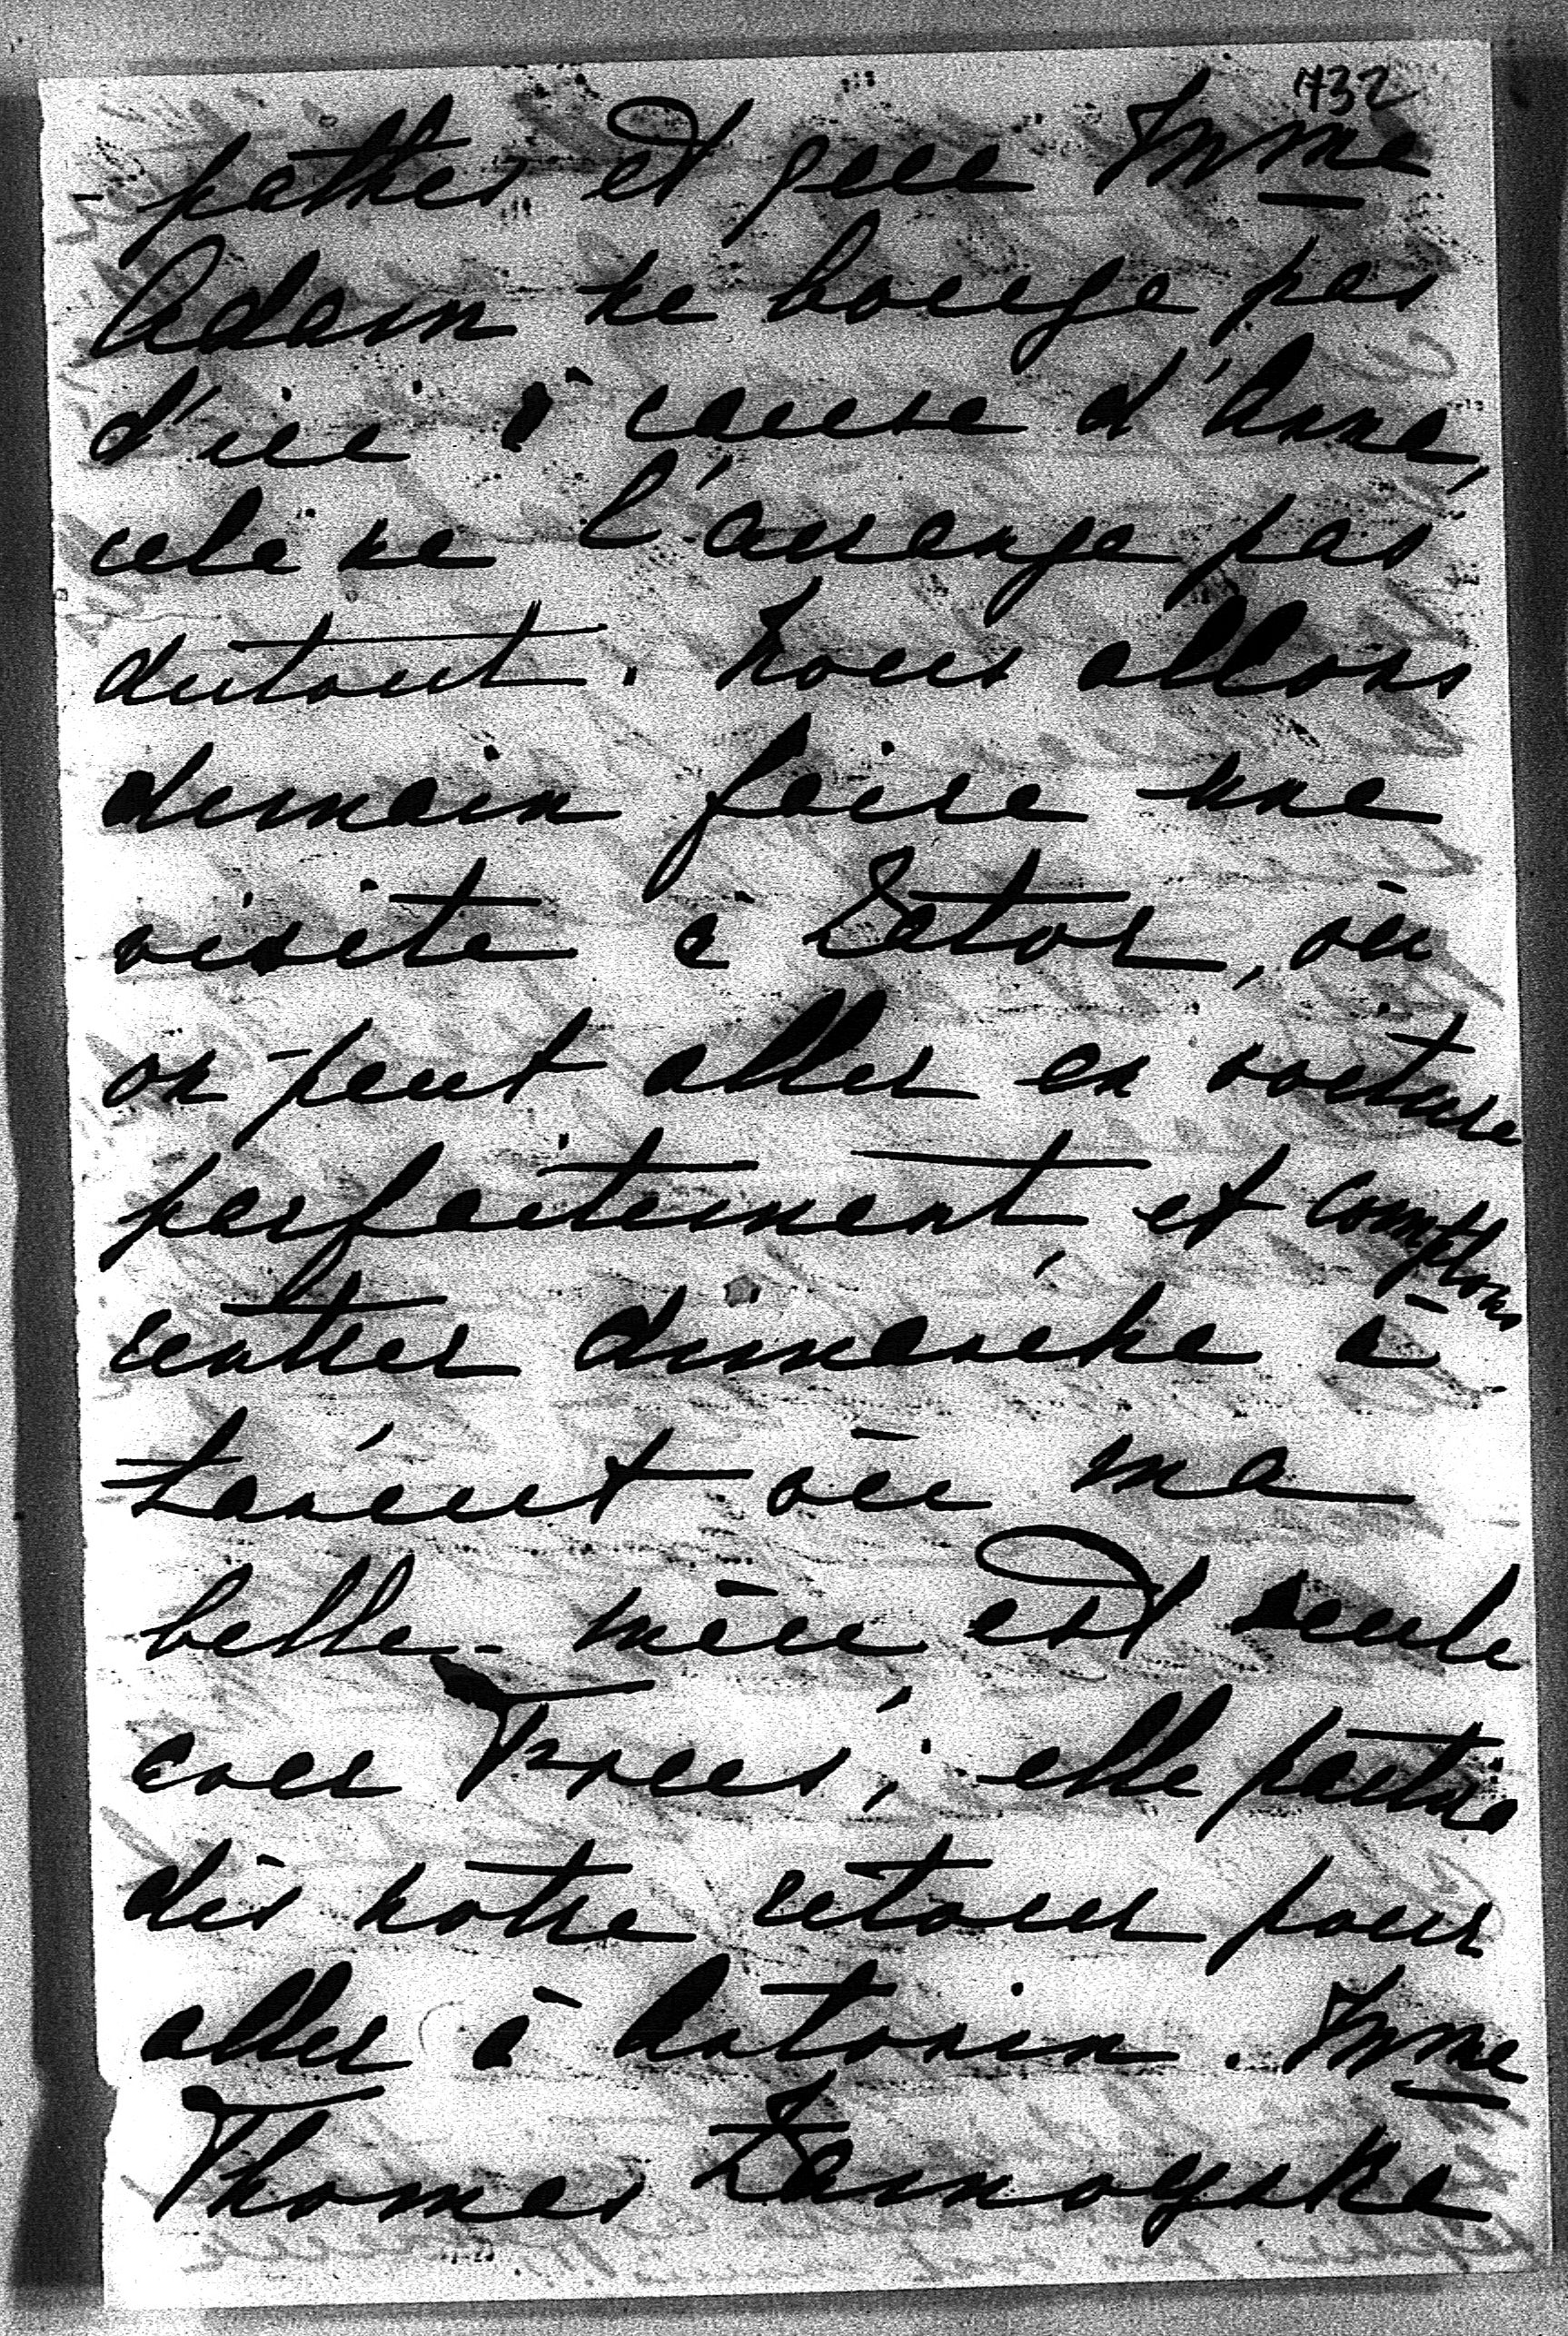 732
pathes et que Mme
Adam ne bouge pas
d'ici à cause d'Anna,
cela ne l'arrange pas
dutout. Nous allons
demain faire une
visite à Zator, où
on peut aller en voiture
parfaitement, et comptons
rentrer dimanche à
où ma
belle-mère est seule
avec ; elle partira
dès notre retour pour
aller à Antonin. Mme
Thomas Zamoyska